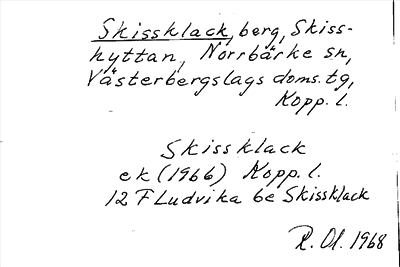 Skissklack, berg, Skiss-
hyttan, Norrbärke sn,
Västerbergslags doms.tg,
Kopp. l.
Skissklack
ek (1966) Kopp. l.
12 F Ludvika 6e Skissklack
R. Ol. 1968